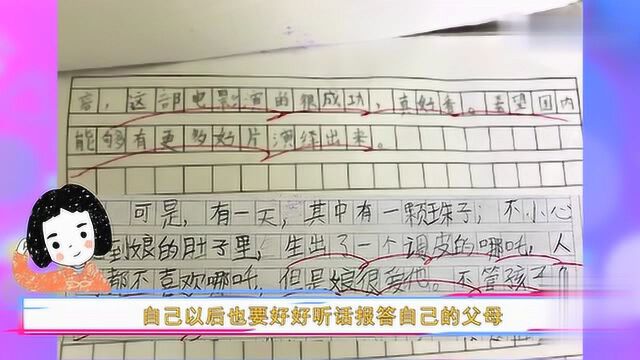 音，这部电影演的很成功，真好看。希望国内
能够有更多好片演绎出来。
可是，有一天，其中有一颗珠子；不小心
到娘的肚子里，生出了一个调皮的哪吒，人
都不喜欢哪吒，但是娘很爱他。不管孩子
自己以后也要好好听话报答自己的父母